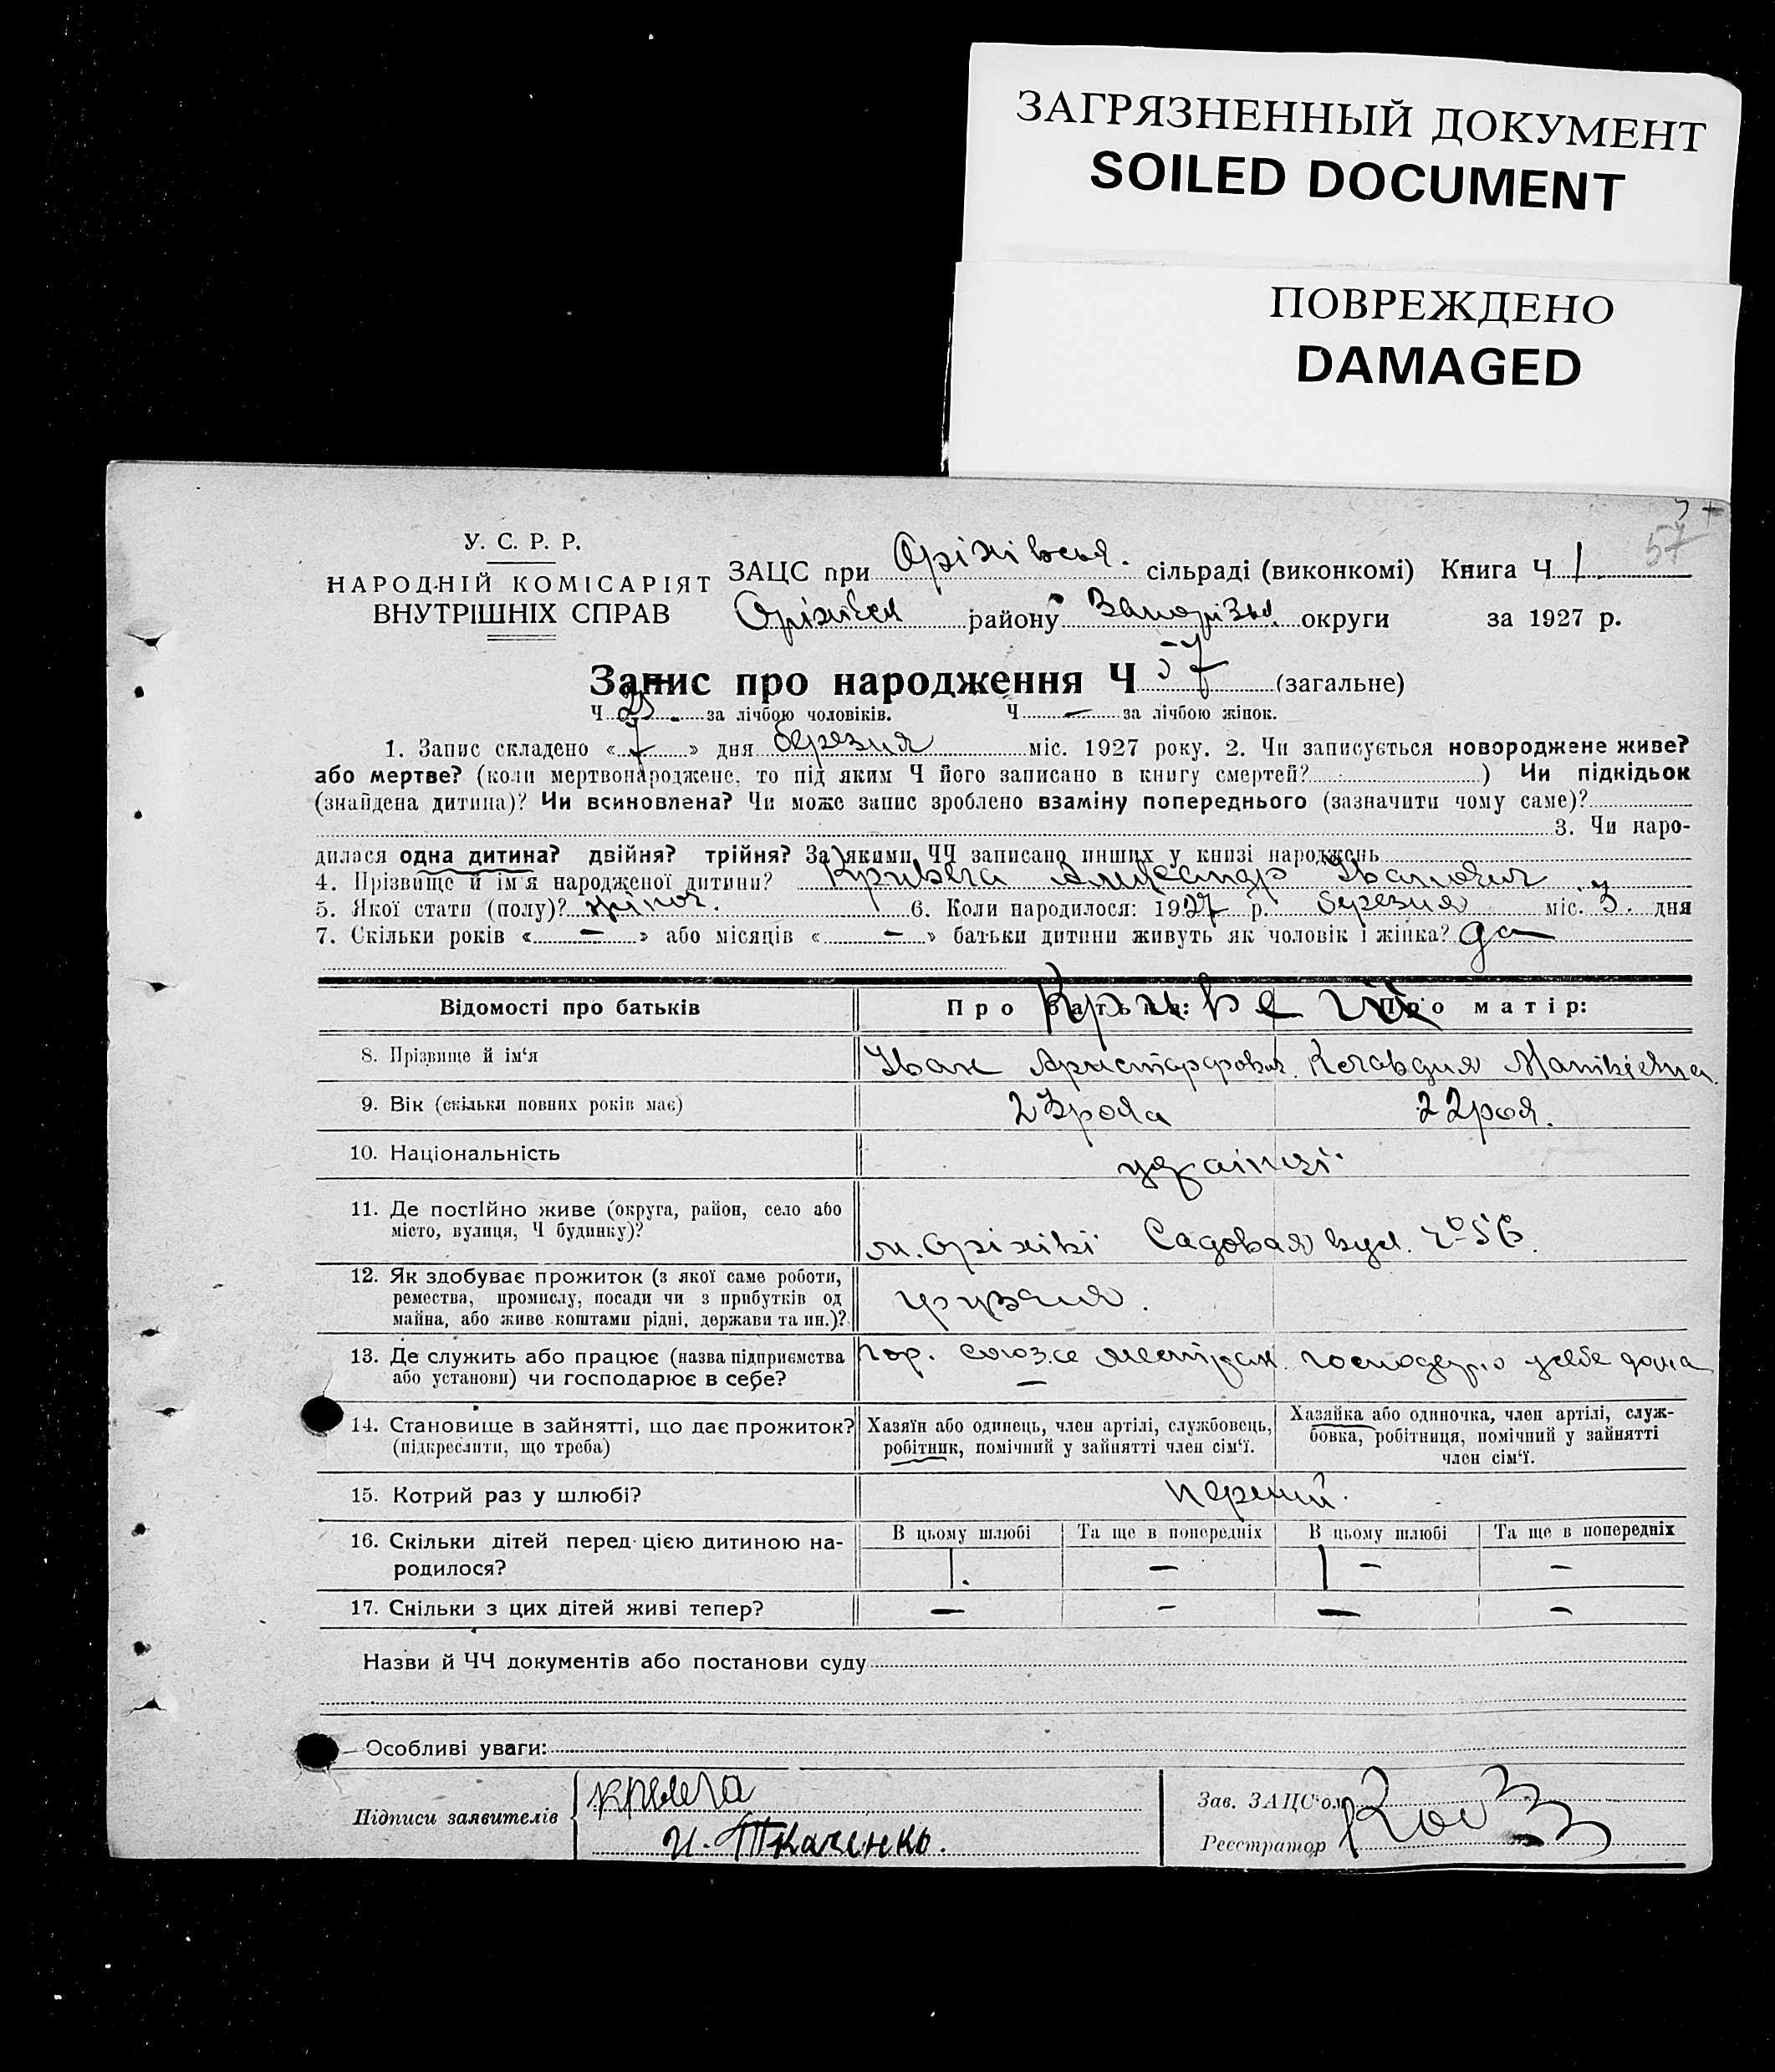 ЗАГРЯЗНЕННЫЙ ДОКУМЕНТ
SOILED DOCUMENT
ПОВРЕЖДЕНО
DAMAGED
57
У. С. Р. Р.
НАРОДНІЙ КОМІСАРІЯТ
ВНУТРІШНІХ СПРАВ
ЗАЦС при сільраді (виконкомі) Книга Ч 1.
району округи за 1927 р.
Запис про народження Ч 57 (загальне)
Ч за лічбою чоловіків. Ч — за лічбою жінок.
1. Запис складено « 7 » дня березня міс. 1927 року. 2. Чи записується новороджене живе?
або мертве? (коли мертвонароджене, то під яким Ч його записано в книгу смертей? ) Чи підкідьок
(знайдена дитина)? Чи всиновлена? Чи може запис зроблено взаміну попереднього (зазначити чому саме)?
3. Чи наро-
дилася одна дитина? двійня? трійня? За якими ЧЧ записано инших у книзі народжень
4. Прізвище й ім'я народженої дитини? Іванович
5. Якої стати (полу)? 6. Коли народилося: 1927 р. березня міс. 3. дня
7. Скільки років « — » або місяців « — » батьки дитини живуть як чоловік і жінка? да
Відомості про батьків Про батька: Про матір:
8. Прізвище й ім'я Іван Клавдия
9. Вік (скільки повних років має) 23 рока 22 рок.
10. Національність українці
11. Де постійно живе (округа, район, село або
місто, вулиця, Ч будинку)?
м. Оріхів Садовая вул.
12. Як здобуває прожиток (з якої саме роботи,
ремества, промислу, посади чи з прибутків од
майна, або живе коштами рідні, держави та ин.)?
13. Де служить або працює (назва підприємства
або установи) чи господарює в себе?
дома
14. Становище в зайнятті, що дає прожиток?
(підкреслити, що треба)
Хазяїн або одинець, член артілі, службовець,
робітник, помічний у зайнятті член сім'ї.
Хазяйка або одиночка, член артілі, служ-
бовка, робітниця, помічний у зайнятті
член сім'ї.
15. Котрий раз у шлюбі? перший
16. Скільки дітей перед цією дитиною на-
родилося?
В цьому шлюбі Та ще в попередніх В цьому шлюбі Та ще в попередніх
1. — 1 — —
17. Скільки з цих дітей живі тепер? — — — —
Назви й ЧЧ документів або постанови суду
Особливі уваги:
Підписи заявителів
И. Ткаченко.
Зав. ЗАЦС'ом
Реєстратор